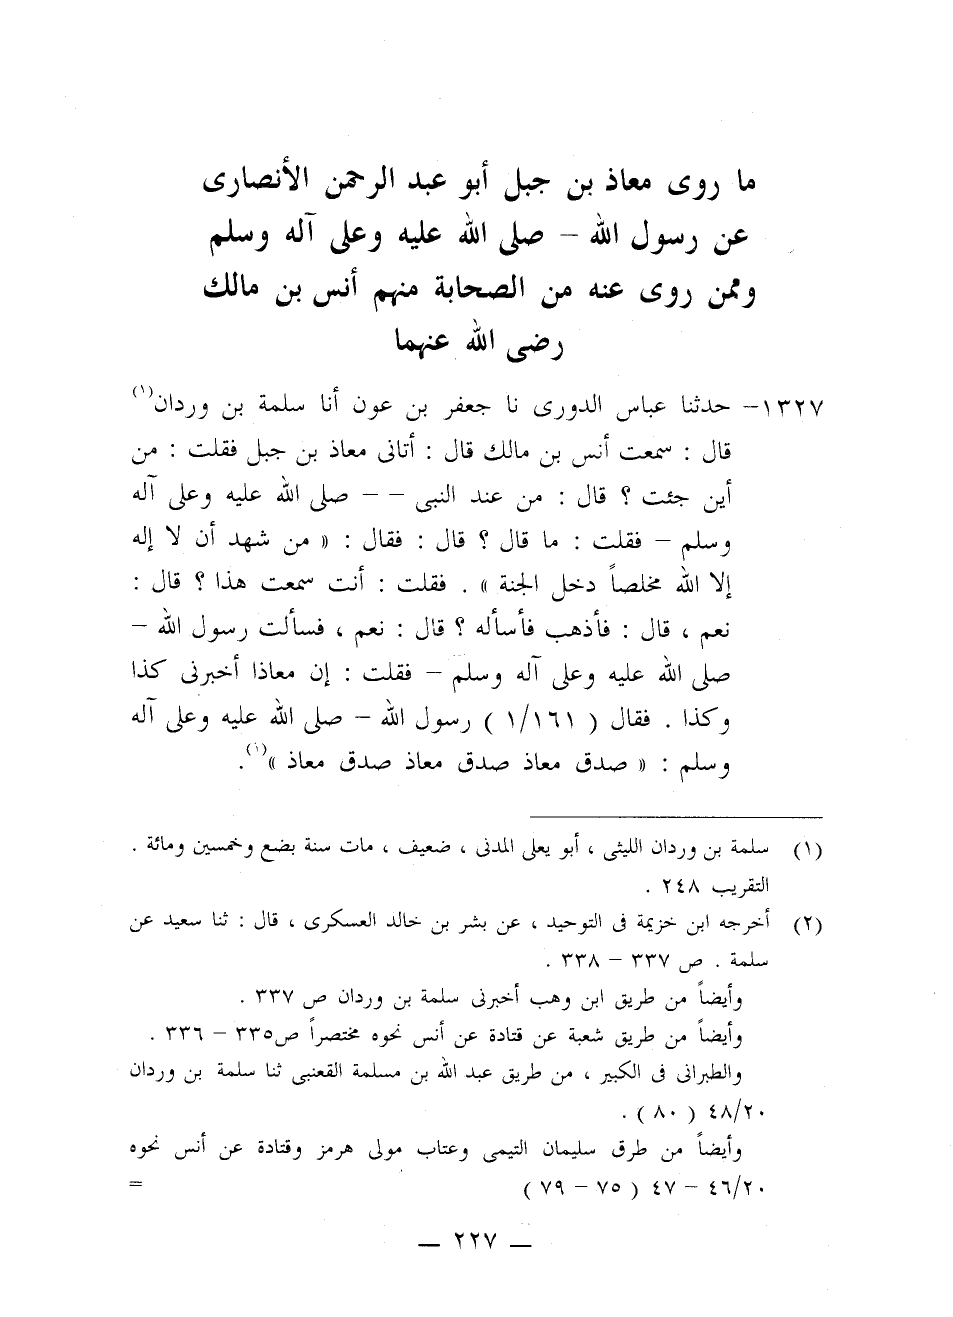 ما روى معاذ بن جبل أبو عبد الرحمن الأنصارى
عن رسول الله – صلى الله عليه وعلى آله وسلم
وممن روى عنه من الصحابة منهم أنس بن مالك
رضى الله عنهما
١٣٢٧– حدثنا عباس الدورى نا جعفر بن عون أنا سلمة بن وردان(١)
قال : سمعت أنس بن مالك قال : أتانى معاذ بن جبل فقلت : من
أين جئت ؟ قال : من عند النبى – – صلى الله عليه وعلى آله
وسلم – فقلت : ما قال ؟ قال : فقال : « من شهد أن لا إله
إلا الله مخلصاً دخل الجنة » . فقلت : أنت سمعت هذا ؟ قال :
نعم ، قال : فأذهب فأسأله ؟ قال : نعم ، فسألت رسول الله –
صلى الله عليه وعلى آله وسلم – فقلت : إن معاذا أخبرنى كذا
وكذا . فقال ( ١/١٦١ ) رسول الله – صلى الله عليه وعلى آله
وسلم : « صدق معاذ صدق معاذ صدق معاذ »(١).
(١) سلمة بن وردان الليثى ، أبو يعلى المدنى ، ضعيف ، مات سنة بضع وخمسين ومائة .
التقريب ٢٤٨ .
(٢) أخرجه ابن خزيمة فى التوحيد ، عن بشر بن خالد العسكرى ، قال : ثنا سعيد عن
سلمة . ص ٣٣٧ – ٣٣٨ .
وأيضاً من طريق ابن وهب أخبرنى سلمة بن وردان ص ٣٣٧ .
وأيضاً من طريق شعبة عن قتادة عن أنس نحوه مختصراً ص٣٣٥ – ٣٣٦ .
والطبرانى فى الكبير ، من طريق عبد الله بن مسلمة القعنبى ثنا سلمة بن وردان
٤٨/٢٠ ( ٨٠ ) .
وأيضاً من طرق سليمان التيمى وعتاب مولى هرمز وقتادة عن أنس نحوه
٤٦/٢٠ – ٤٧ ( ٧٥ – ٧٩ ) =
— ٢٢٧ —